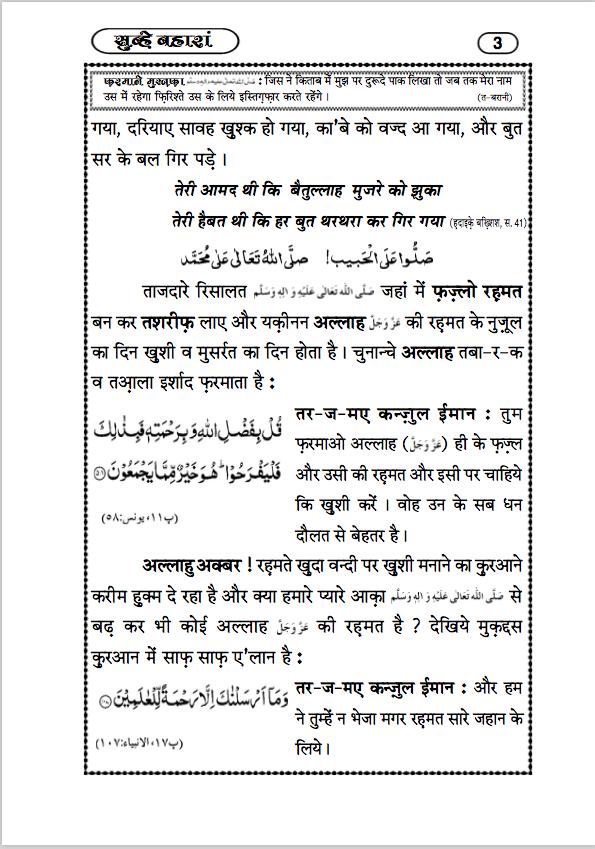 सुब्हे बहारां
3
फ़रमाने मुस्तफ़ा صَلَّى اللّٰهُ تَعَالٰى عَلَيْهِ وَاٰلِهٖ وَسَلَّم : जिस ने किताब में मुझ पर दुरूदे पाक लिखा तो जब तक मेरा नाम
उस में रहेगा फ़िरिश्ते उस के लिये इस्तिग़्फ़ार करते रहेंगे । (त-बरानी)
गया, दरियाए सावह ख़ुश्क हो गया, का'बे को वज्द आ गया, और बुत
सर के बल गिर पड़े ।
तेरी आमद थी कि बैतुल्लाह मुजरे को झुका
तेरी हैबत थी कि हर बुत थरथरा कर गिर गया (हदाइक़े बख़्शिश, स. 41)
صَلُّوا عَلَى الْحَبِيب! صلَّى اللّٰهُ تَعَالٰى عَلٰى مُحَمَّد
ताजदारे रिसालत صَلَّى اللّٰهُ تَعَالٰى عَلَيْهِ وَاٰلِهٖ وَسَلَّم जहां में फ़ज़्लो रह़मत
बन कर तशरीफ़ लाए और यक़ीनन अल्लाह عَزَّوَجَلَّ की रह़मत के नुज़ूल
का दिन ख़ुशी व मुसर्रत का दिन होता है । चुनान्चे अल्लाह तबा-र-क
व तआ़ला इर्शाद फ़रमाता है :
قُلْ بِفَضْلِ اللّٰهِ وَبِرَحْمَتِهٖ فَبِذٰلِكَ
فَلْيَفْرَحُوْا ؕ هُوَ خَيْرٌ مِّمَّا يَجْمَعُوْنَ ﴿۵۸﴾
(پ۱۱، یونس:۵۸)
तर-ज-मए कन्ज़ुल ईमान : तुम
फ़रमाओ अल्लाह (عَزَّوَجَلَّ) ही के फ़ज़्ल
और उसी की रह़मत और इसी पर चाहिये
कि ख़ुशी करें । वोह उन के सब धन
दौलत से बेहतर है ।
अल्लाहु अक्बर ! रह़मते ख़ुदा वन्दी पर ख़ुशी मनाने का क़ुरआने
करीम हुक्म दे रहा है और क्या हमारे प्यारे आक़ा صَلَّى اللّٰهُ تَعَالٰى عَلَيْهِ وَاٰلِهٖ وَسَلَّم से
बढ़ कर भी कोई अल्लाह عَزَّوَجَلَّ की रह़मत है ? देखिये मुक़द्दस
क़ुरआन में साफ़ साफ़ ए'लान है :
وَمَاۤ اَرْسَلْنٰكَ اِلَّا رَحْمَةً لِّلْعٰلَمِيْنَ ﴿۱۰۷﴾
(پ۱۷، الانبیاء:۱۰۷)
तर-ज-मए कन्ज़ुल ईमान : और हम
ने तुम्हें न भेजा मगर रह़मत सारे जहान के
लिये ।